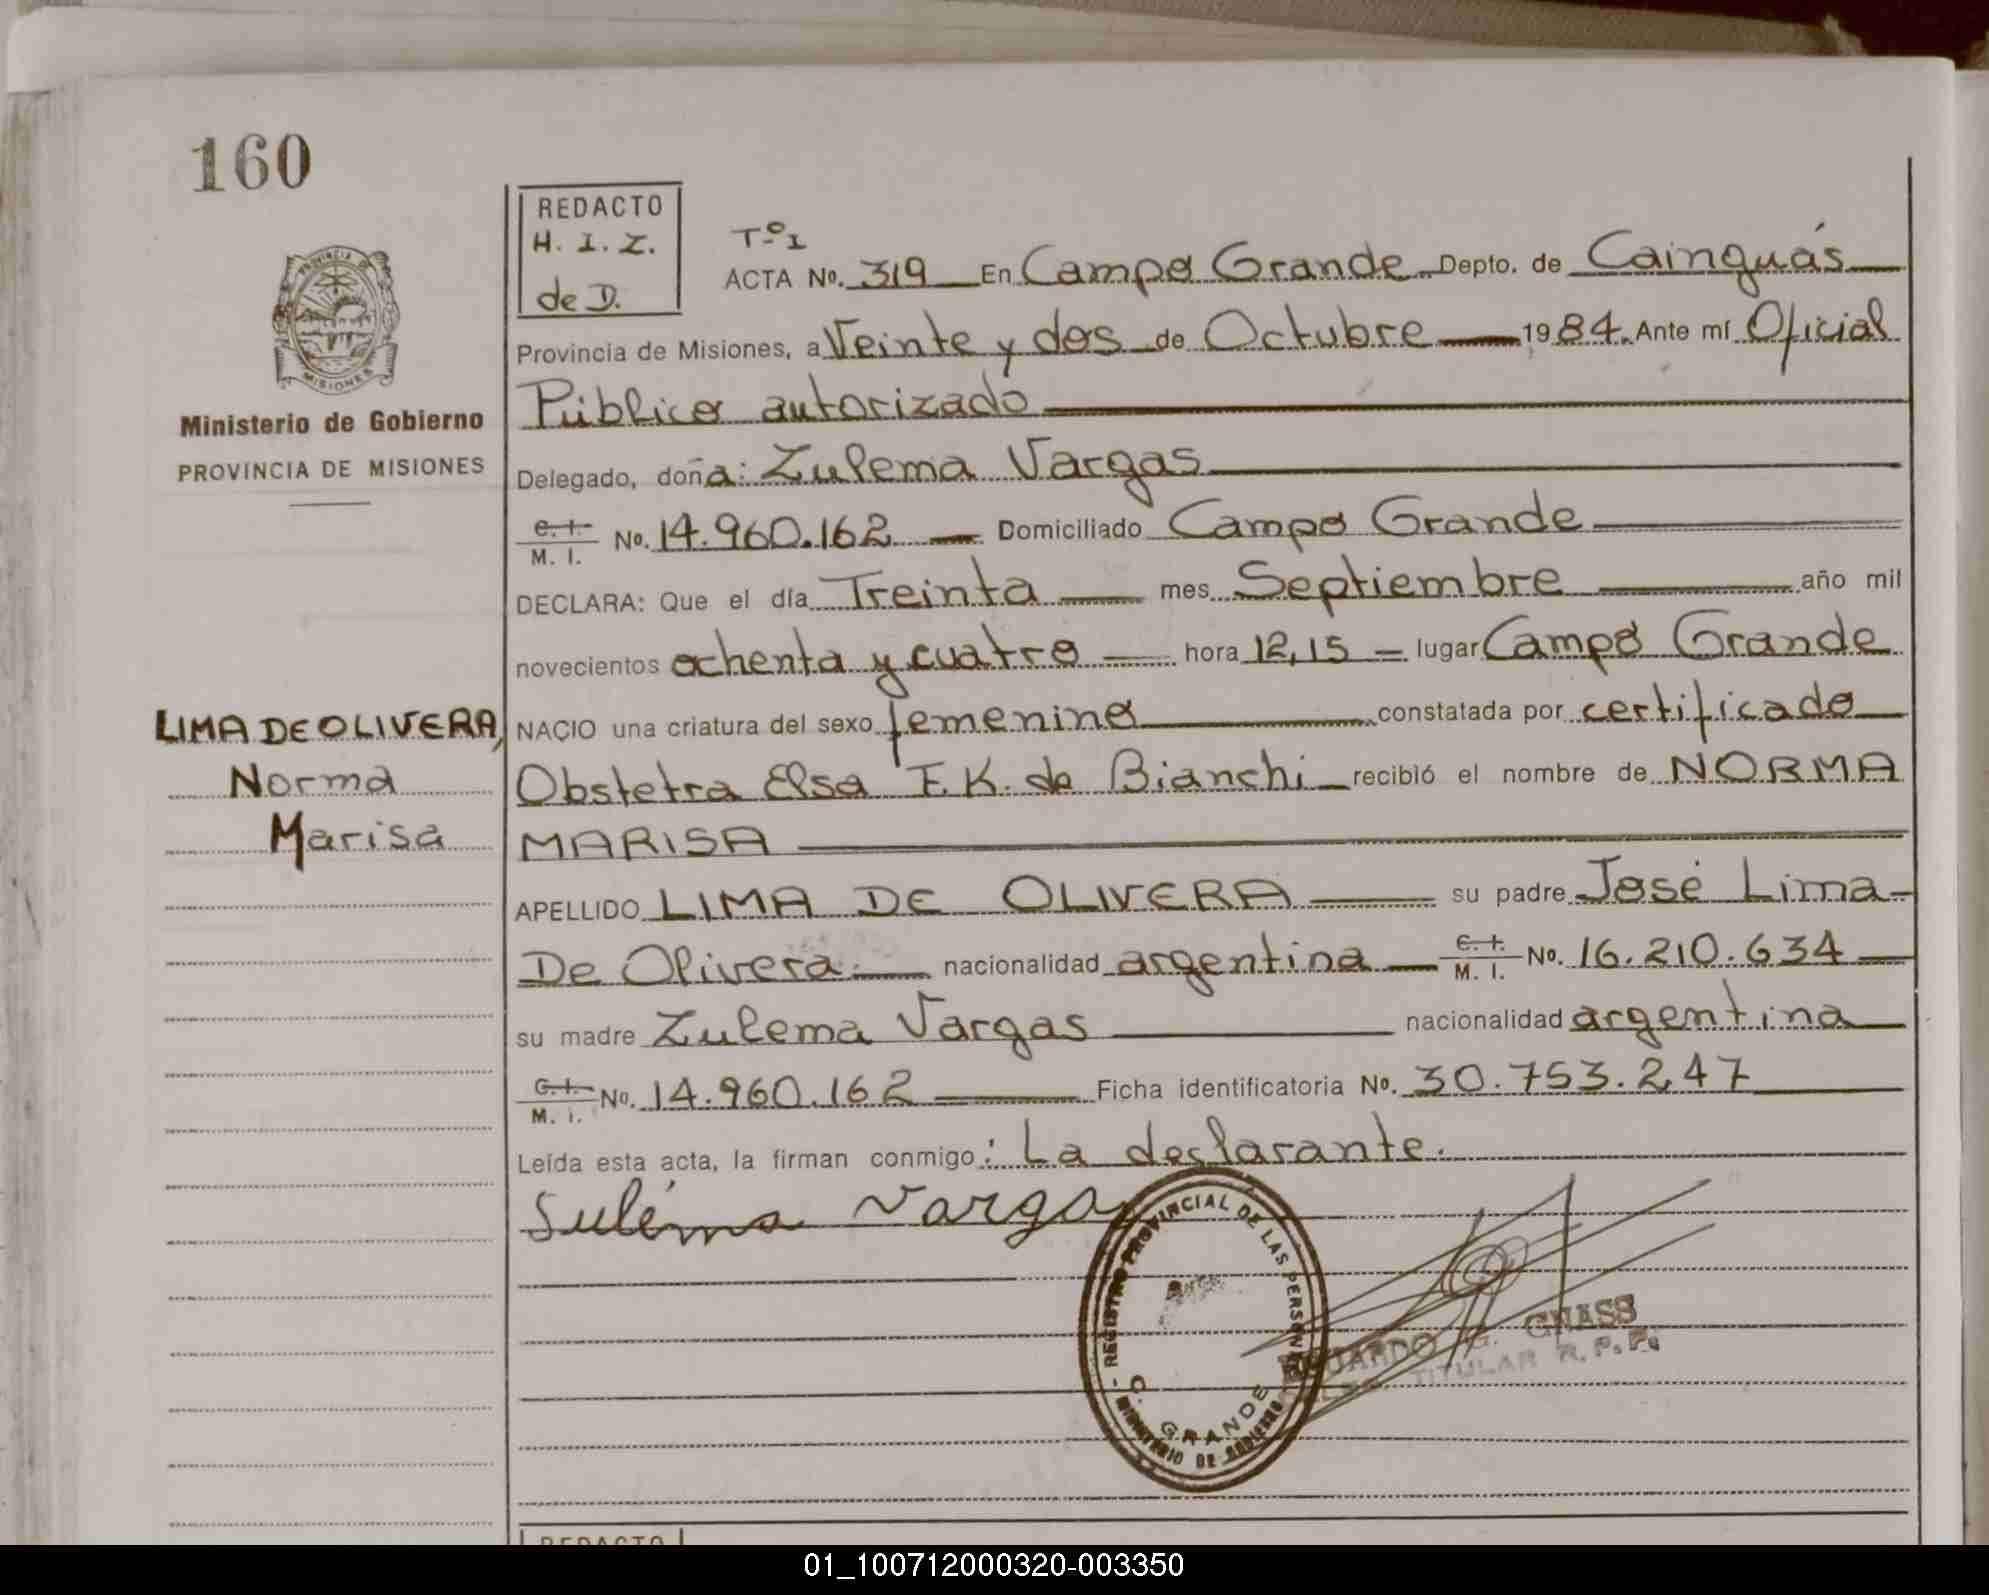 160
PROVINCIA DE
MISIONES
Ministerio de Gobierno
PROVINCIA DE MISIONES
LIMA DE OLIVERA,
Norma
Marisa
REDACTO
H. I. Z.
de D.
Tº I
ACTA Nº. 319 En Campo Grande Depto. de Cainguás
Provincia de Misiones, a Veinte y dos de Octubre 1984. Ante mí Oficial
Público autorizado
Delegado, doña: Zulema Vargas
C. I. M. I. Nº. 14.960.162 Domiciliado Campo Grande
DECLARA: Que el día Treinta mes Septiembre año mil
novecientos ochenta y cuatro hora 12,15 lugar Campo Grande
NACIO una criatura del sexo femenino constatada por certificado
Obstetra Elsa F. K. de Bianchi recibió el nombre de NORMA
MARISA
APELLIDO LIMA DE OLIVERA su padre José Lima
De Olivera. nacionalidad argentina C. I. M. I. Nº. 16.210.634
su madre Zulema Vargas nacionalidad argentina
C. I. M. I. Nº. 14.960.162 Ficha identificatoria Nº. 30.753.247
Leída esta acta, la firman conmigo: La declarante.
Suléma Varga
- REGISTRO PROVINCIAL DE LAS PERSONAS
C. GRANDE
MINISTERIO DE GOBIERNO
EDUARDO G. GNASS
TITULAR R. P. P.
REDACTO
01_100712000320-003350